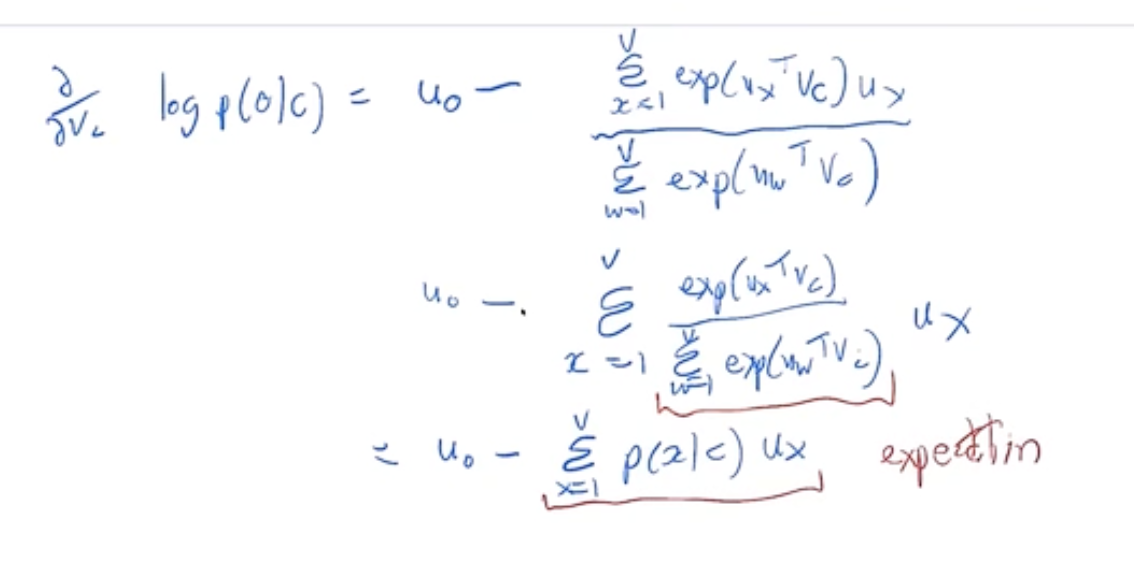 ∂/∂v_c log p(o|c) = u_o − (∑_{x=1}^{V} exp(u_x^T v_c) u_x) / (∑_{w=1}^{V} exp(u_w^T v_c))
u_o − ∑_{x=1}^{V} (exp(u_x^T v_c) / ∑_{w=1}^{V} exp(u_w^T v_c)) u_x
= u_o − ∑_{x=1}^{V} p(x|c) u_x